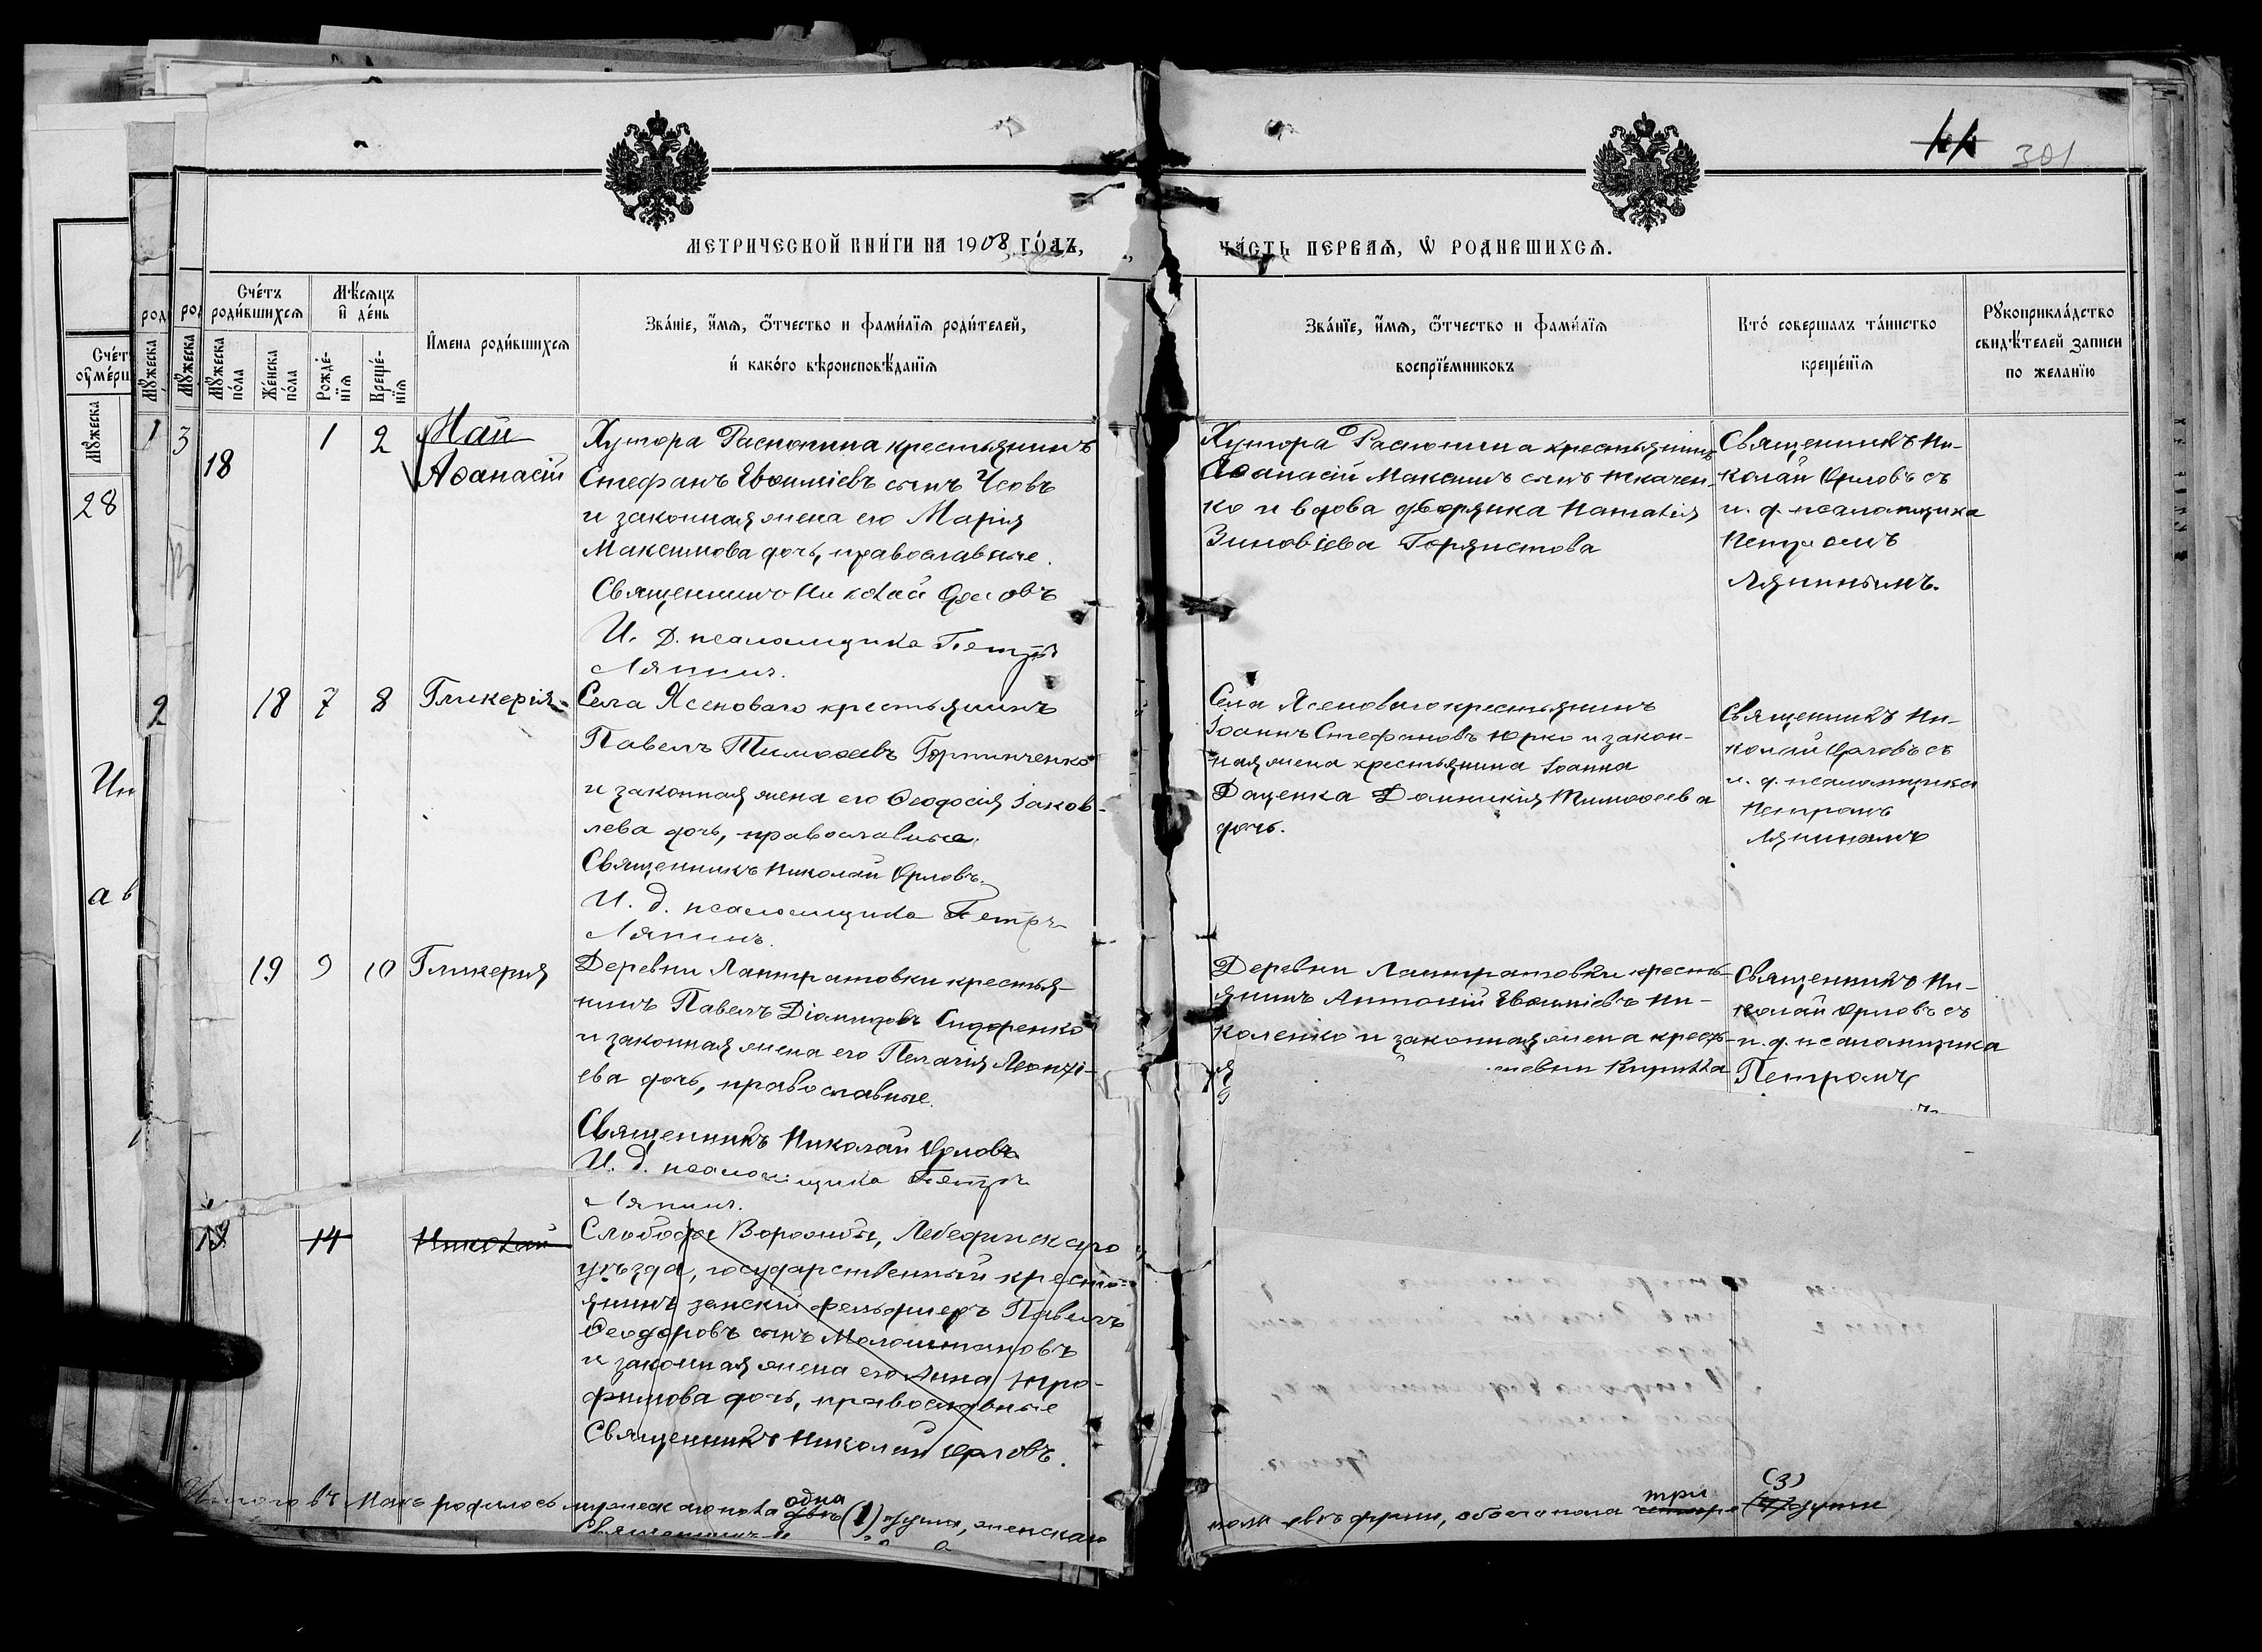 301
МЕТРИЧЕСКОЙ КНИГИ НА 1908 ГОДЪ,
ЧАСТЬ ПЕРВАЯ, Ѡ РОДИВШИХСЯ.
Счетъ родившихся
Мужеска пола
Женска пола
Мѣсяцъ и день
Рожденія
Крещенія
Имена родившихся
Званіе, имя, отчество и фамилія родителей,
и какого вѣроисповѣданія
Званіе, имя, отчество и фамилія
воспріемниковъ
Кто совершалъ таинство
крещенія
Рукоприкладство
свидѣтелей записи
по желанію
Май
18
1
2
Аѳанасій
Хутора Распопина крестьянинъ
Стефанъ Евѳиміевъ сынъ Усовъ
и законная жена его Марія
Максимова дочь, православные.
Священникъ Николай Орловъ
И. д. псаломщика Петръ
Ляпинъ.
Хутора Распопина крестьянинъ
Аѳанасій Максимъ сынъ Ткачен-
ко и вдова дворянка Наталія
Зиновіева
Священникъ Ни-
колай Орловъ съ
и. д. псаломщика
Петромъ
Ляпинымъ.
18
7
8
Гликерія
Села Ясеноваго крестьянинъ
Павелъ Тимоѳеевъ Горпинченко
и законная жена его Ѳеодосія Іаков-
лева дочь, православные.
Священникъ Николай Орловъ.
И. д. псаломщика Петръ
Ляпинъ.
Села Ясеноваго крестьянинъ
Іоаннъ Стефановъ Юрко и закон-
ная жена крестьянина Іоанна
Даценка Домникія Тимоѳеева
дочь.
Священникъ Ни-
колай Орловъ съ
и. д. псаломщика
Петромъ
Ляпинымъ
19
9
10
Гликерія
Деревни Лантратовки крестья-
нинъ Павелъ Діомидовъ Сидоренко
и законная жена его Пелагія Леонті-
ева дочь, православные.
Священникъ Николай Орловъ
И. д. псаломщика Петръ
Ляпинъ.
Деревни Лантратовки кресть-
янинъ Антоній Евѳиміевъ Ни-
коленко и законная жена кресть-
Кирилла
Священникъ Ни-
колай Орловъ съ
и. д. псаломщика
Петромъ
19
14
Николай
Слободы Ворожбы, Лебединскаго
уѣзда, государственный кресть-
янинъ земскій фельдшеръ Павелъ
Ѳеодоровъ сынъ
и законная жена его Анна Тро-
фимова дочь, православные
Священникъ Николай Орловъ.
Итого въ Маѣ родилось мужескаго пола двѣ одна (1) душа, женскаго
пола двѣ души, обоего пола четыре три (3) души